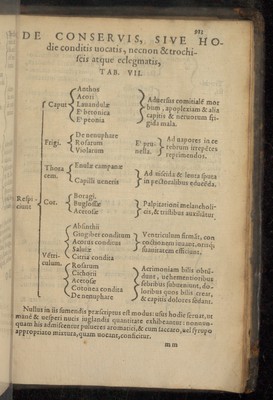 DE CONSERVIS, SIVE HO-
die conditis uocatis, necnon & trochi-
scis atque eclegmatis,
TAB. VII.
Respi
ciunt
Caput
Anthos
Acori
Lauandulæ
E betonica
E peonia
Aduersus comitialē mor
bum, apoplexiam & alia
capitis & neruorum fri-
gida mala.
Frigi.
De nenuphare
Rosarum
Violarum
E pru-
nella.
Ad uapores in ce
rebrum irrepētes
reprimendos.
Thora
cem.
Enulæ campanæ
Capilli ueneris
Ad uiscida & lenta sputa
in pectoralibus educēda.
Cor.
Boragi.
Buglossæ
Acetosæ
Palpitationi melancholi-
cis, & tristibus auxiliatur
Vētri-
culum.
Absinthii
Gingiber conditum
Acorus conditus
Saluiæ
Citria condita
Ventriculum firmāt, con
coctionem iuuant,
suauitatem efficiunt.
Rosarum
Cichorii
Acetosæ
Cotonea condita
De nenuphare
Acrimoniam bilis obtū-
dunt, uehementioribus
febribus subueniunt, do-
loribus quos bilis creat,
& capitis dolores sedant.
Nullus in iis sumendis præscriptus est modus: usus hodie seruat, ut
manè & uesperi nucis iuglandis quantitate exhibeantur: nonnun-
quam his admiscentur pulueres aromatici, & cum saccaro, uel syrupo
appropriato mixtura, quam uocant, conficitur.
m m